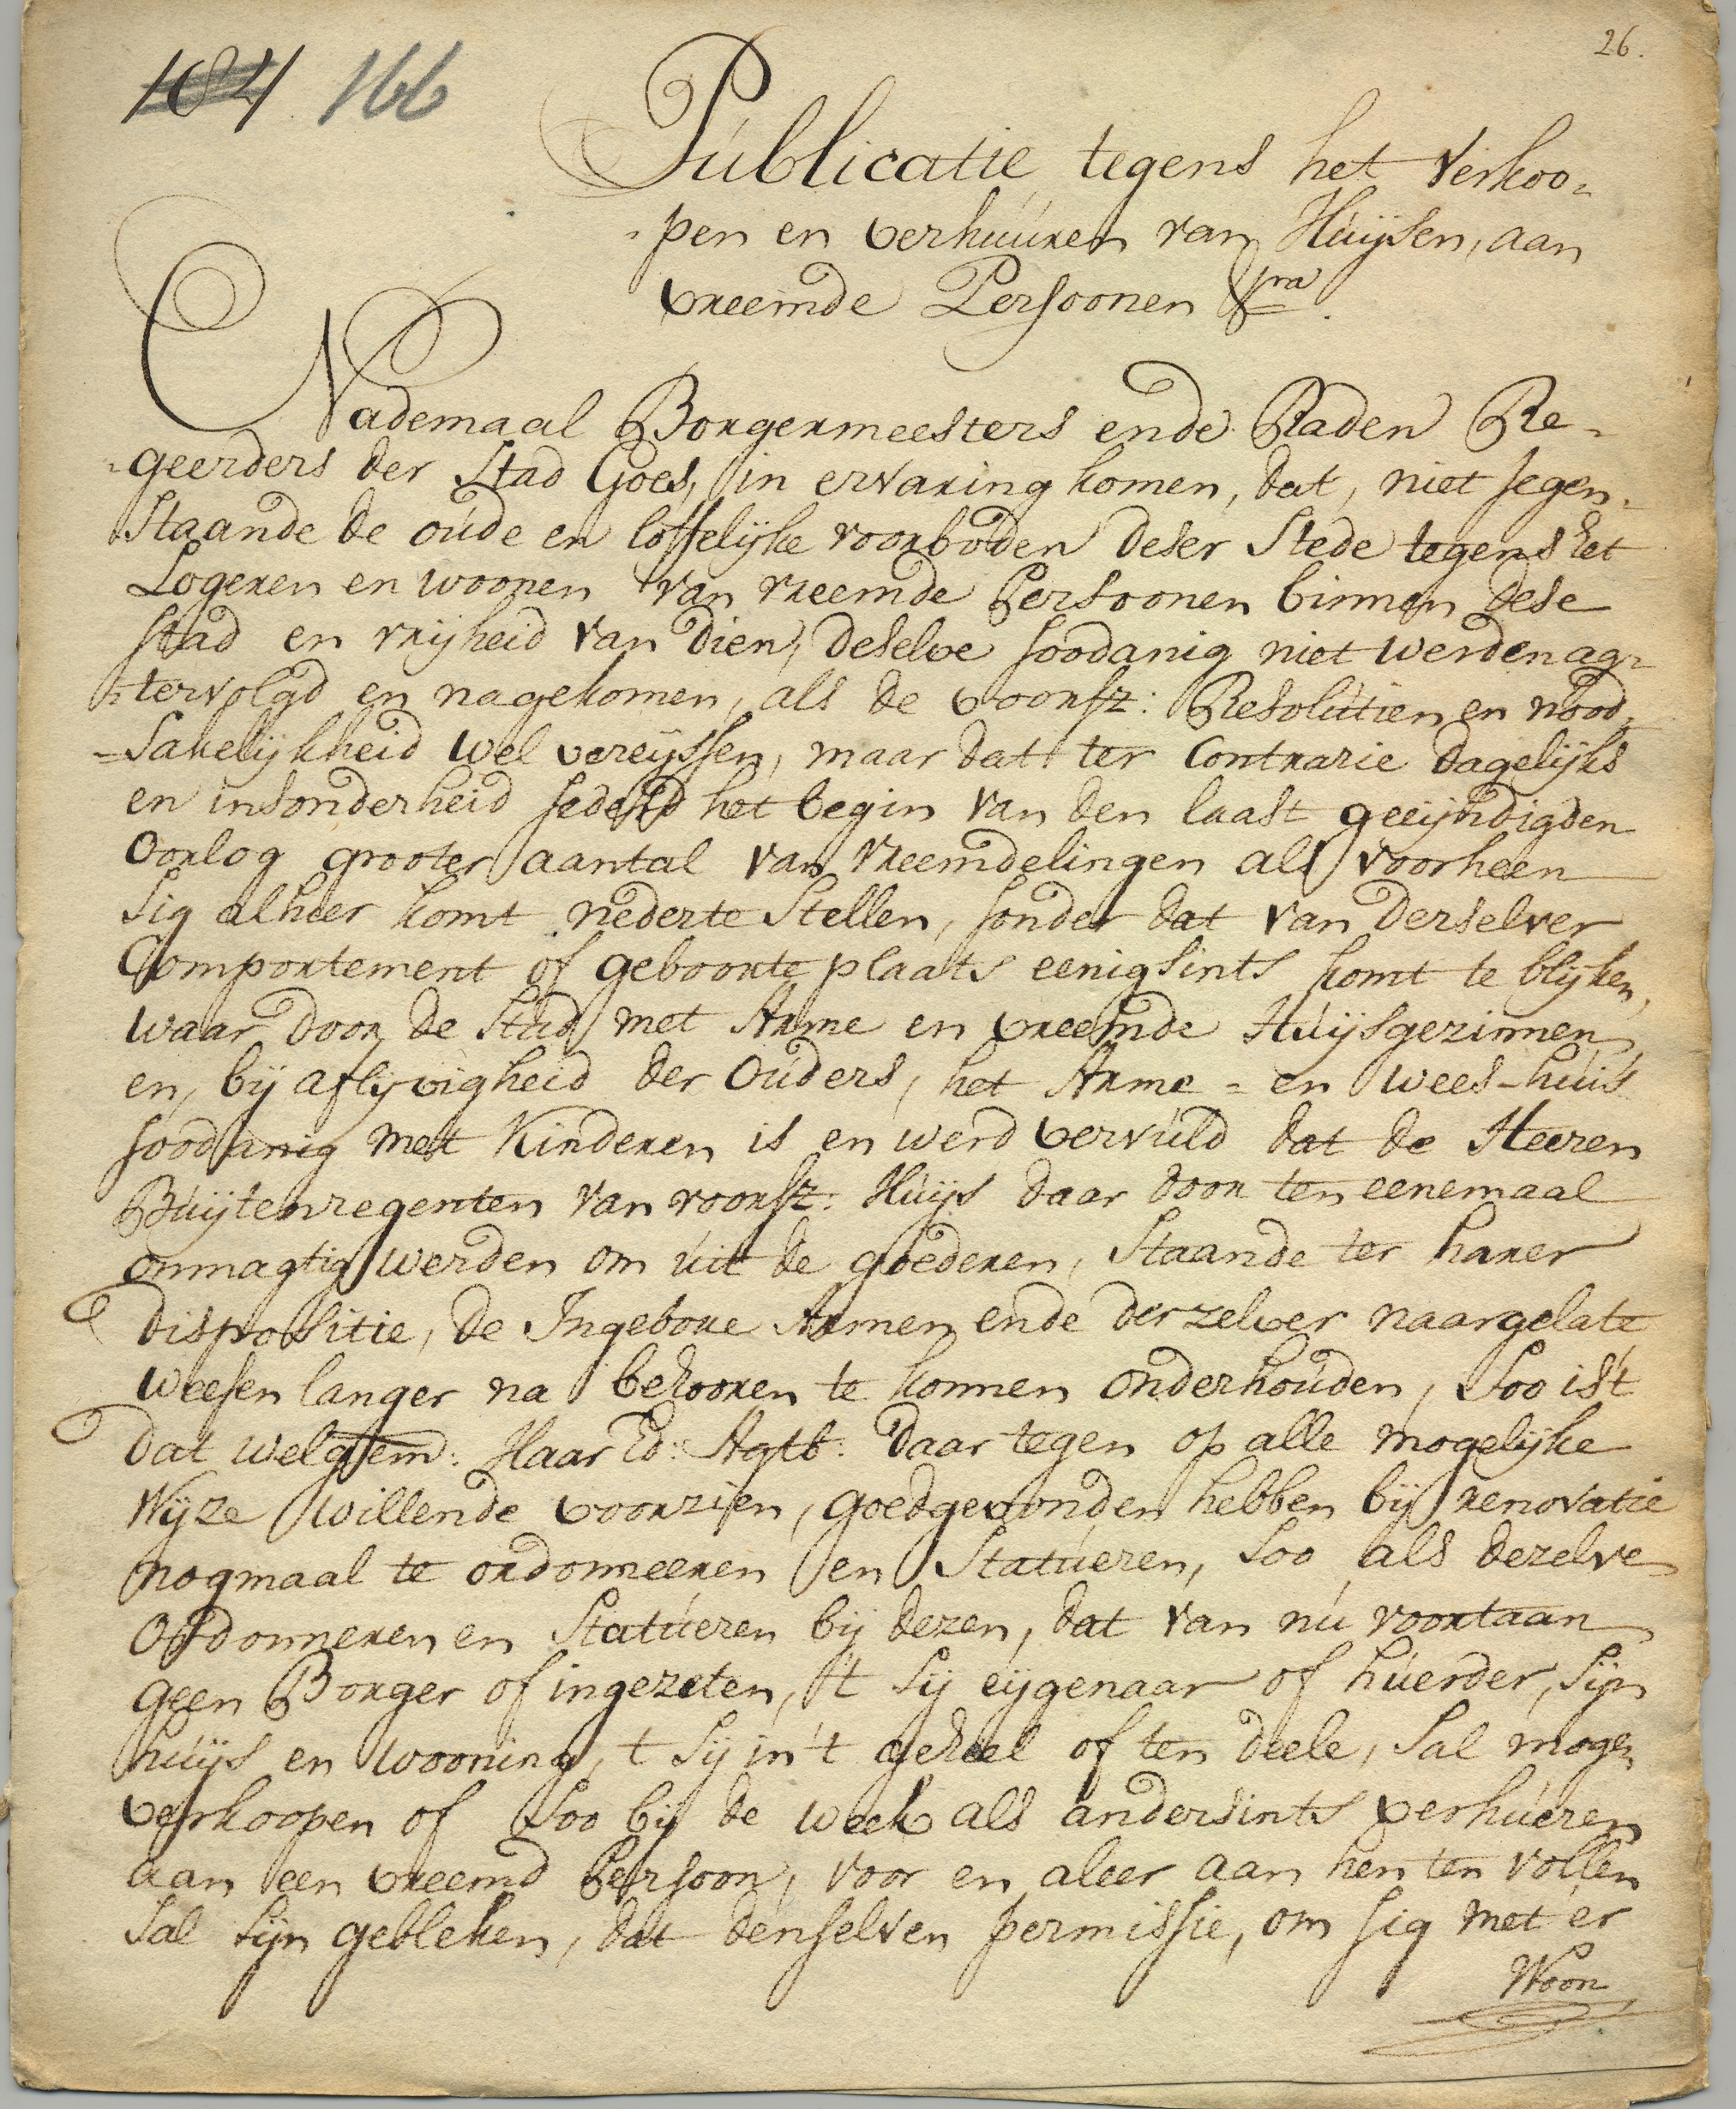 26.
184 166
Publicatie tegens het Verkoo=
=pen en verhuuren van Huijsen, aan
vreemde Persoonen &ra.
Nademaal Borgermeesters ende Raden Re=
=geerders der Stad Goes, in ervaring komen, dat, niet tegen=
Staande de oude en loffelijke voorboden deser Stede tegens het
Logeren en woonen van vreemde Persoonen binnen dese
stad en vrijheid van dien, deselve soodanig niet werden ag=
=tervolgd en nagekomen, als de voorsz: Resolutien en nood=
=Sakelijkheid wel vereijssen, maar dat ter Contrarie dagelijks
en insonderheid sederd het begin van den laast geeijndigden
Oorlog grooter aantal van Vreemdelingen als voorheen
Sig alhier komt neder te Stellen, sonder dat van derselver
Comportement of geboorte plaats eenigsints komt te blijken,
waar door de Stad met Arme en vreemde Huijsgezinnen,
en, bij aflijvigheid der Ouders, het Arme = en Wees-huis
soodanig met Kinderen is en werd vervuld dat de Heeren
Buijtenregenten van voorsz: Huijs daar door ten eenemaal
onmagtig werden om uit de goederen, Staande ter harer
dispositie, de Ingebore Armen ende derzelver naargelate
weesen langer na behooren te konnen onderhouden, Soo ist
dat welgem: Haar Ed: Agtb: daar tegen op alle mogelijke
Wijze willende voorzien, goedgevonden hebben bij renovatie
nogmaal te ordonneeren en Statueren, Soo als dezelve
Ordonneren en Statueren bij dezen, dat van nu voortaan
geen Borger of ingezeten, 't Sij eijgenaar of huerder, Sijn
huijs en wooning, t Sij in't geheel of ten deele, Sal mogen
verkoopen of Soo bij de week als andersints verhueren
aan een vreemd Persoon, voor en aleer aan hen ten vollen
Sal Sijn gebleken, dat denselven permissie, om sig met er
Woon